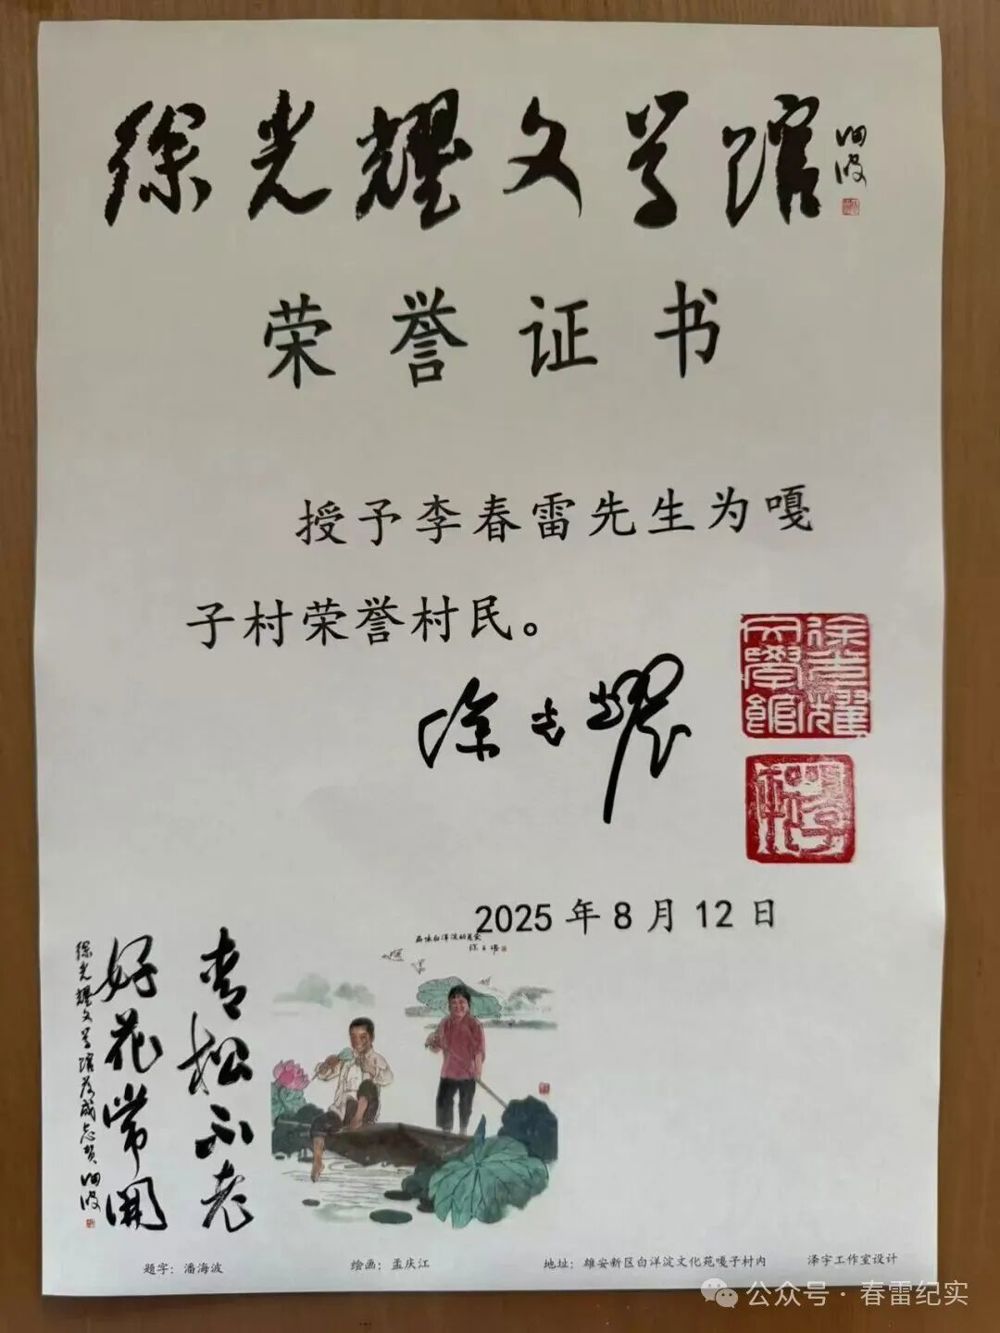 徐光耀文学馆
荣誉证书
授予李春雷先生为嘎
子村荣誉村民。
徐光耀
徐光耀文學館
2025年8月12日
青松不老
好花常開
徐光耀文学馆落成志贺
题字：潘海波
绘画：孟庆江
地址：雄安新区白洋淀文化苑嘎子村内
泽宇工作室设计
公众号·春雷纪实